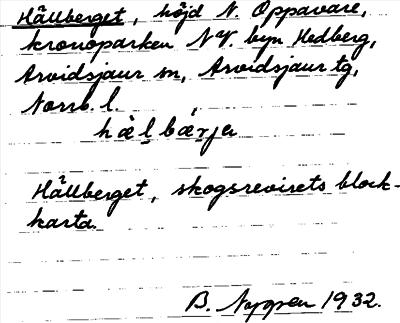 Hällberget, höjd N. Oppavare,
kronoparken NV. byn Hedberg,
Arvidsjaur sn, Arvidsjaur tg,
Norrb. l.
hȧl̥bǽrjɐ
Hällberget, skogsrevirets block-
karta.
B. Nygren 1932.